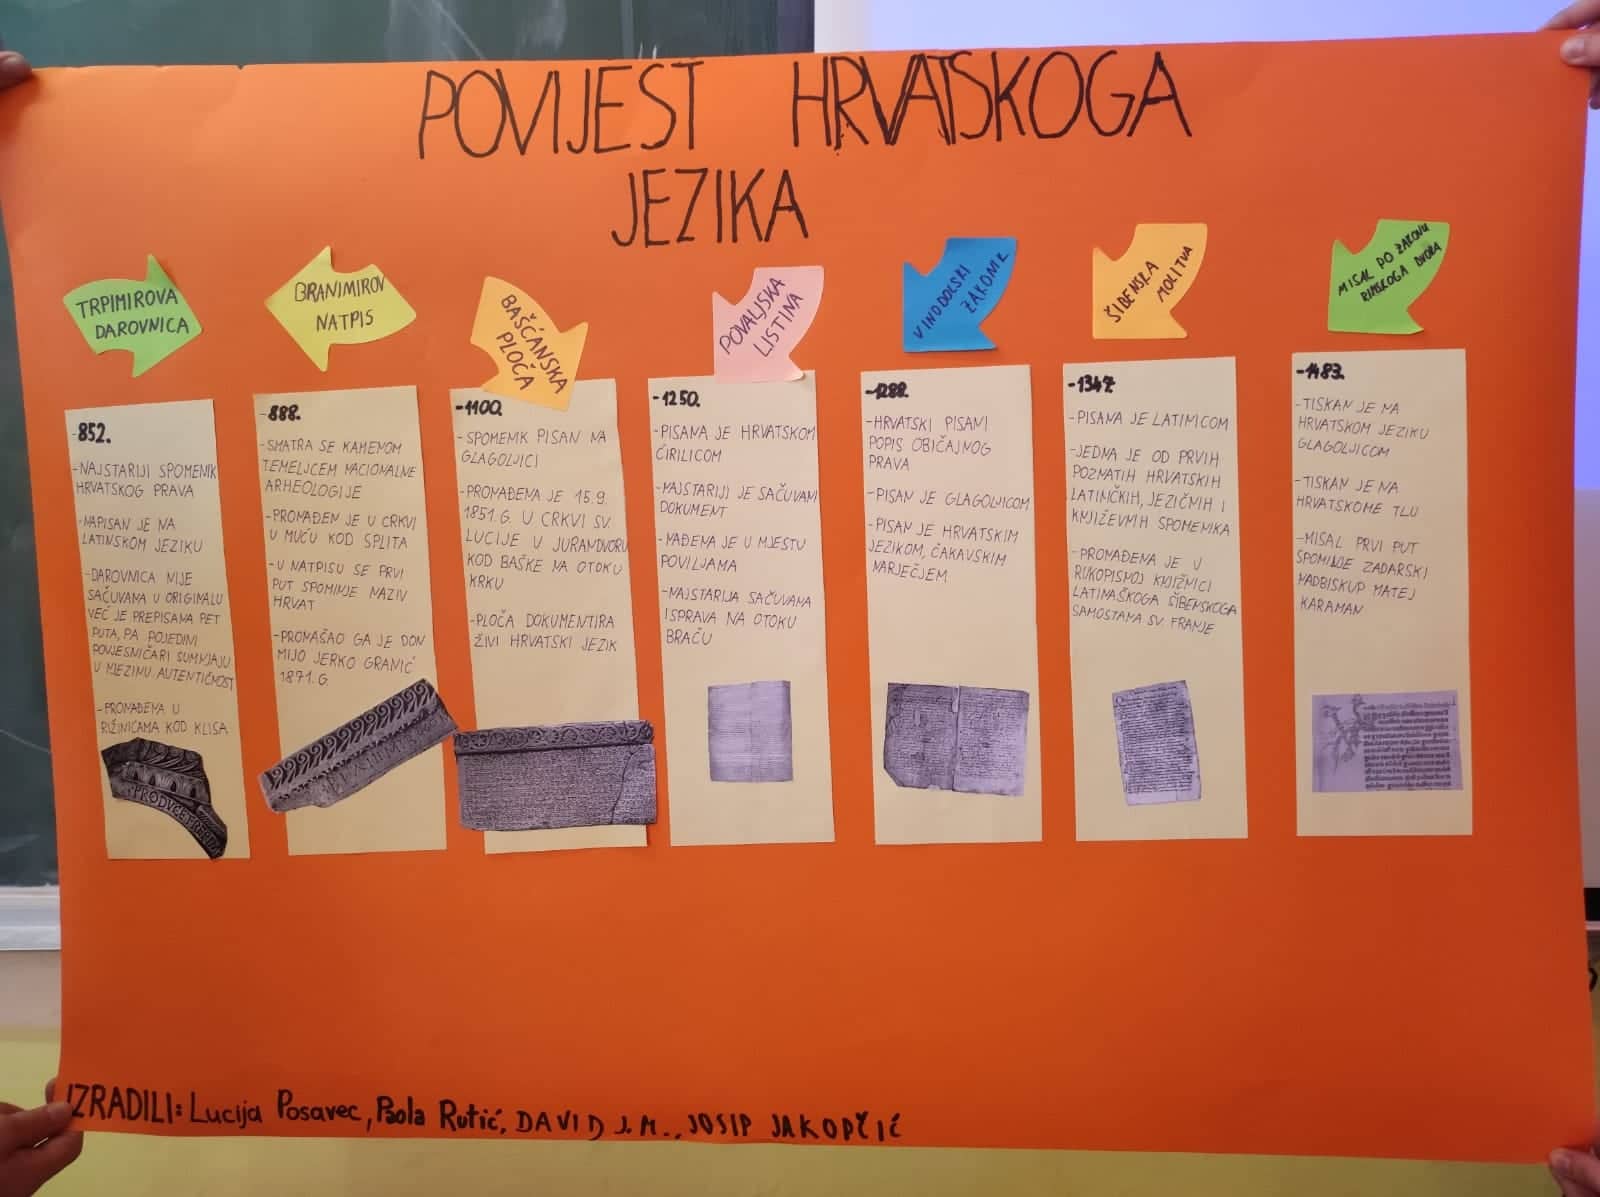 POVIJEST HRVATSKOGA
JEZIKA
TRPIMIROVA
DAROVNICA
-852.
-NAJSTARIJI SPOMENIK
HRVATSKOG PRAVA
-NAPISAN JE NA
LATINSKOM JEZIKU
-DAROVNICA NIJE
SAČUVANA U ORIGINALU
VEĆ JE PREPISANA PET
PUTA, PA POJEDINI
POVJESNIČARI SUMNJAJU
U NJEZINU AUTENTIČNOST
-PRONAĐENA U
RIŽINICAMA KOD KLISA
BRANIMIROV
NATPIS
-888.
-SMATRA SE KAMENOM
TEMELJCEM NACIONALNE
ARHEOLOGIJE
-PRONAĐEN JE U CRKVI
U MUĆU KOD SPLITA
-U NATPISU SE PRVI
PUT SPOMINJE NAZIV
HRVAT
-PRONAŠAO GA JE DON
MIJO JERKO GRANIĆ
1871.G.
BAŠĆANSKA
PLOČA
-1100.
-SPOMENIK PISAN NA
GLAGOLJICI
-PRONAĐENA JE 15.9.
1851.G. U CRKVI SV.
LUCIJE U JURANDVORU
KOD BAŠKE NA OTOKU
KRKU
-PLOČA DOKUMENTIRA
ŽIVI HRVATSKI JEZIK
POVALJSKA
LISTINA
-1250.
-PISANA JE HRVATSKOM
ĆIRILICOM
-NAJSTARIJI JE SAČUVANI
DOKUMENT
-NAĐENA JE U MJESTU
POVILJAMA
-NAJSTARIJA SAČUVANA
ISPRAVA NA OTOKU
BRAČU
VINODOLSKI
ZAKONIK
-1288.
-HRVATSKI PISANI
POPIS OBIČAJNOG
PRAVA
-PISAN JE GLAGOLJICOM
-PISAN JE HRVATSKIM
JEZIKOM, ČAKAVSKIM
NARJEČJEM
ŠIBENSKA
MOLITVA
-1347.
-PISANA JE LATINICOM
-JEDNA JE OD PRVIH
POZNATIH HRVATSKIH
LATINČKIH, JEZIČNIH I
KNJIŽEVNIH SPOMENIKA
-PRONAĐENA JE U
RUKOPISNOJ KNJIŽNICI
LATINAŠKOGA ŠIBENSKOGA
SAMOSTANA SV. FRANJE
MISAL PO ZAKONU
RIMSKOGA DVORA
-1483.
-TISKAN JE NA
HRVATSKOM JEZIKU
GLAGOLJICOM
-TISKAN JE NA
HRVATSKOME TLU
-MISAL PRVI PUT
SPOMINJE ZADARSKI
NADBISKUP MATEJ
KARAMAN
IZRADILI: Lucija Posavec, Paola Rutić, DAVID J.M., JOSIP JAKOPČIĆ